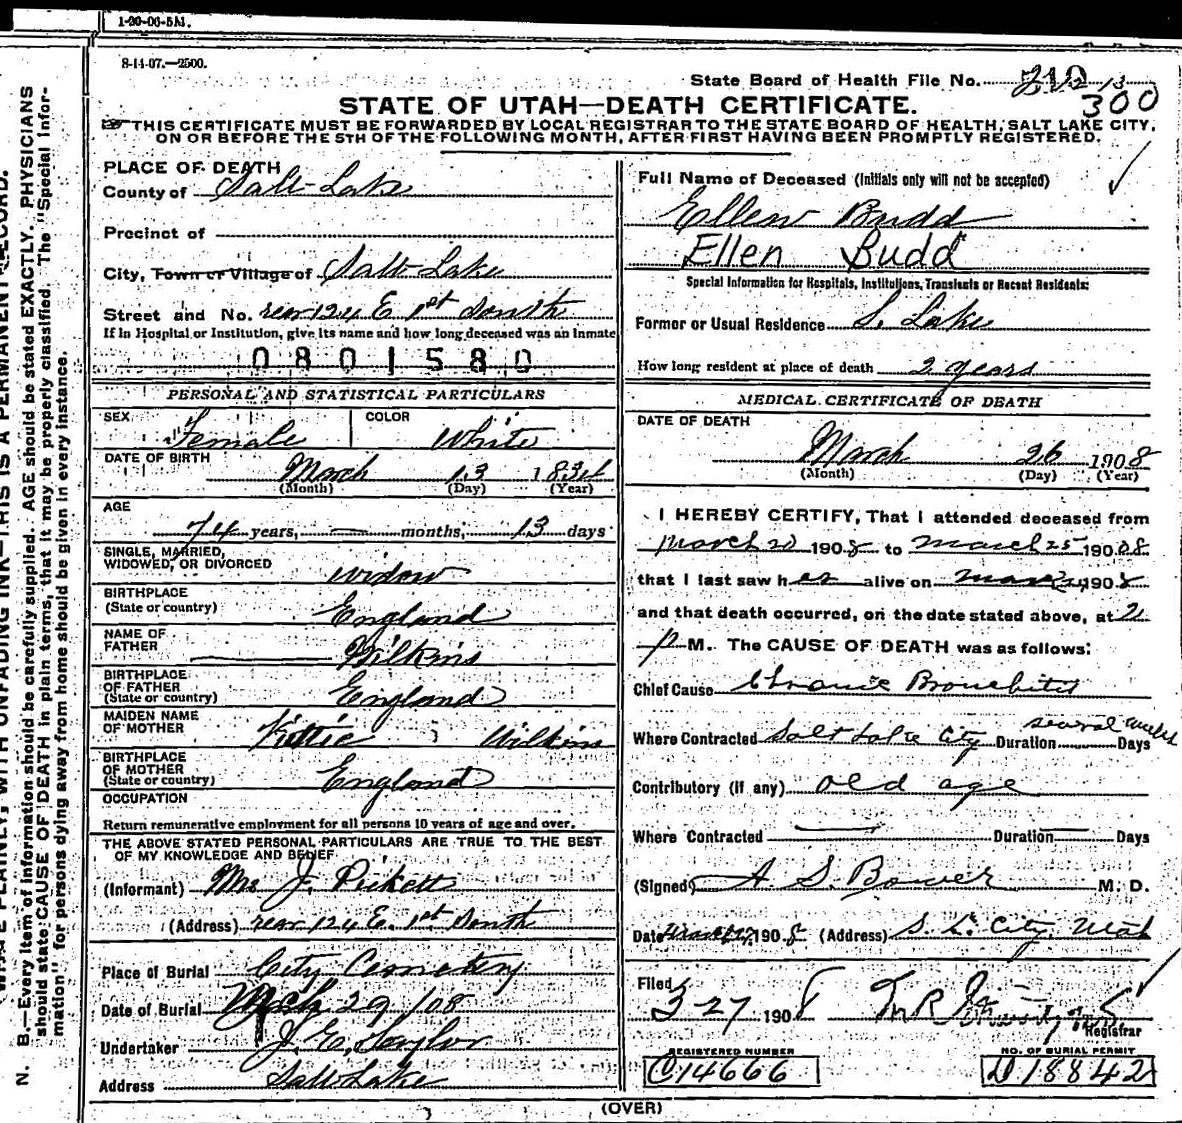 1-20-06-5M.
8-14-07.—2500.
State Board of Health File No.
300
STATE OF UTAH—DEATH CERTIFICATE.
THIS CERTIFICATE MUST BE FORWARDED BY LOCAL REGISTRAR TO THE STATE BOARD OF HEALTH, SALT LAKE CITY,
ON OR BEFORE THE 5TH OF THE FOLLOWING MONTH, AFTER FIRST HAVING BEEN PROMPTLY REGISTERED.
PLACE OF DEATH
County of Salt Lake
Precinct of
City, Town or Village of Salt Lake
Street and No. rear 124 E 1st South
If in Hospital or Institution, give its name and how long deceased was an Inmate
0801580
PERSONAL AND STATISTICAL PARTICULARS
SEX Female COLOR White
DATE OF BIRTH March 13 1834
(Month) (Day) (Year)
AGE
74 years, — months, 13 days
SINGLE, MARRIED,
WIDOWED, OR DIVORCED widow
BIRTHPLACE
(State or country) England
NAME OF
FATHER Wilkins
BIRTHPLACE
OF FATHER
(State or country) England
MAIDEN NAME
OF MOTHER Kittie Wilkins
BIRTHPLACE
OF MOTHER
(State or country) England
OCCUPATION
Return remunerative employment for all persons 10 years of age and over.
THE ABOVE STATED PERSONAL PARTICULARS ARE TRUE TO THE BEST
OF MY KNOWLEDGE AND BELIEF
(Informant) Mrs J. Pickett
(Address) rear 124 E. 1st South
Place of Burial City Cemetery
Date of Burial Mch 29/08
Undertaker J. E. Taylor
Address Salt Lake
Full Name of Deceased (Initials only will not be accepted)
Ellen Budd
Ellen Budd
Special Information for Hospitals, Institutions, Transients or Recent Residents:
Former or Usual Residence S. Lake
How long resident at place of death 2 years
MEDICAL CERTIFICATE OF DEATH
DATE OF DEATH
March 26 1908
(Month) (Day) (Year)
I HEREBY CERTIFY, That I attended deceased from
March 20 1908 to March 25 190 08
that I last saw her alive on 1908
and that death occurred, on the date stated above, at 2
P M. The CAUSE OF DEATH was as follows:
Chief Cause Chronic Bronchitis
Where Contracted Salt Lake City Duration several weeks Days
Contributory (if any) old age
Where Contracted — Duration — Days
(Signed) A S. Bower M. D.
Date 1908 (Address) S. L. City, Utah
Filed
3-27 1908
Registrar
REGISTERED NUMBER
C14666
NO. OF BURIAL PERMIT
D18842
(OVER)
WRITE PLAINLY, WITH UNFADING INK—THIS IS A PERMANENT RECORD.
N. B.—Every item of information should be carefully supplied. AGE should be stated EXACTLY. PHYSICIANS
should state CAUSE OF DEATH in plain terms, that it may be properly classified. The "Special Infor-
mation" for persons dying away from home should be given in every instance.